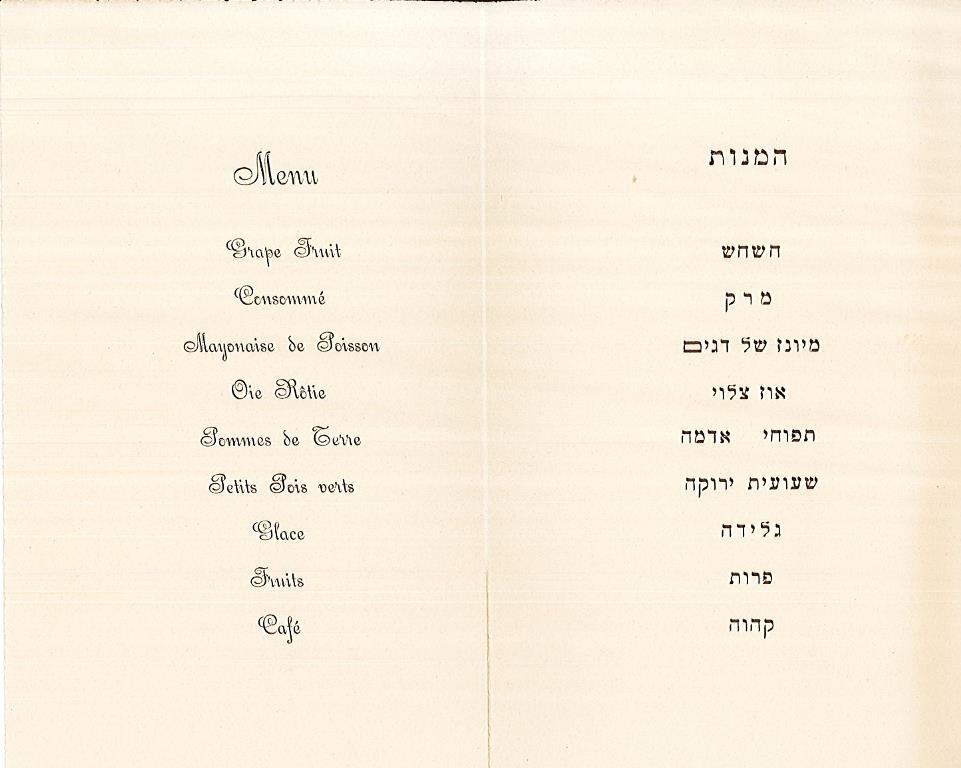 Menu
Grape Fruit
Consommé
Mayonaise de Poisson
Oie Rôtie
Pommes de Terre
Petits Pois verts
Glace
Fruits
Café
המנות
חשחש
מרק
מיונז של דגים
אוז צלוי
תפוחי אדמה
שעועית ירוקה
גלידה
פרות
קהוה